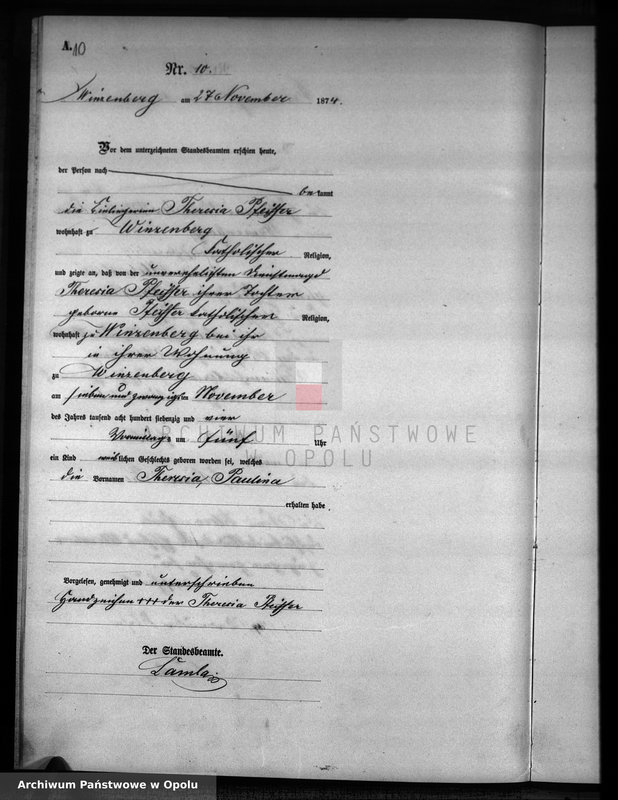 A. 10
Nr. 10.
Winzenberg am 27 November 1874.
Vor dem unterzeichneten Standesbeamten erschien heute,
der Person nach
bekannt
die Theresia Pfeiffer
wohnhaft zu Winzenberg
katholischer Religion,
und zeigte an, daß von der unverehelichten
Theresia Pfeiffer ihrer Tochter
geborne Pfeiffer katholischer Religion,
wohnhaft zu Winzenberg bei ihr
in ihrer Wohnung
zu Winzenberg
am sieben und zwanzigsten November
des Jahres tausend acht hundert siebenzig und vier
Vormittags um fünf Uhr
ein Kind weiblichen Geschlechts geboren worden sei, welches
die Vornamen Theresia, Paulina
erhalten habe
Vorgelesen, genehmigt und unterschrieben
Handzeichen +++ der Theresia Pfeiffer
Der Standesbeamte.
ARCHIWUM PAŃSTWOWE
W OPOLU
Archiwum Państwowe w Opolu